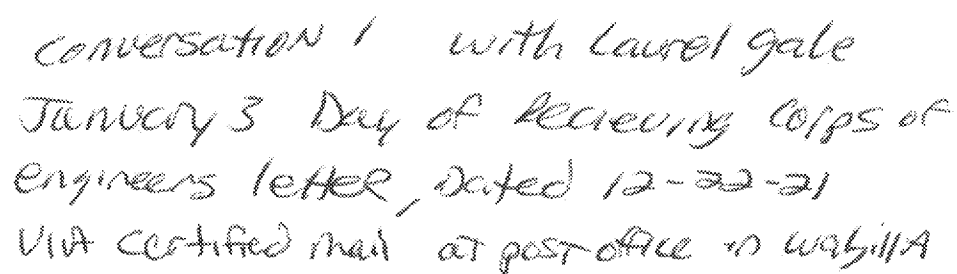 Conversation 1 with Laurel gale
January 3 Day of Recieving Corps of
engineers letter, Dated 12-22-21
VIA certified mail at post office in wasillA